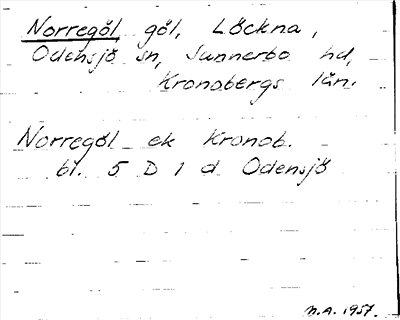 Norregöl, göl, Löckna,
Odensjö sn, Sunnerbo hd,
Kronobergs län.
Norregöl ek Kronob.
bl. 5 D 1 d Odensjö
N.A. 1957.